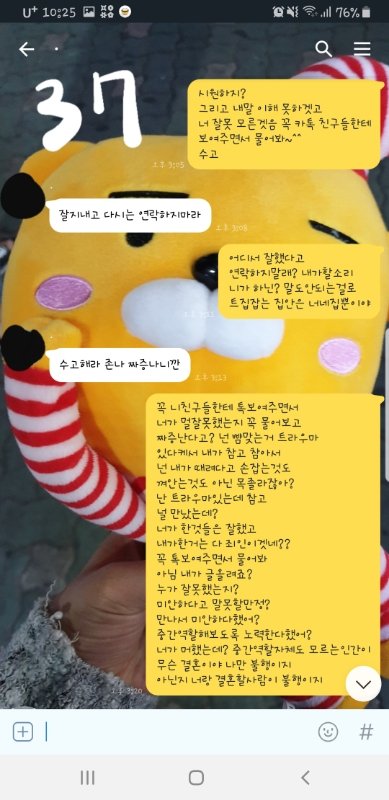 U+ 10:25
76%
37
시원하지?
그리고 내말 이해 못하겠고
너 잘못 모른겟음 꼭 카톡 친구들한테
보여주면서 물어봐~^^
수고
오후 3:05
잘지내고 다시는 연락하지마라
오후 3:08
어디서 잘했다고
연락하지말래? 내가할소리
니가 하닌? 말도안되는걸로
트집잡는 집안은 너네집뿐이야
오후 3:11
수고해라 존나 짜증나니깐
오후 3:13
꼭 니친구들한테 톡보여주면서
너가 멀잘못했는지 꼭 물어보고
짜증난다고? 넌 뺨맞는거 트라우마
있다케서 내가 참고 참아서
넌 내가 때려다고 손잡는것도
껴안는것도 아닌 목졸라잖아?
난 트라우마있는데 참고
널 만났는데?
너가 한것들은 잘했고
내가한거는 다 죄인이겟네??
꼭 톡보여주면서 물어봐
아님 내가 글올려죠?
누가 잘못했는지?
미안하다고 말못할만정?
만나서 미안하다했어?
중간역할해보도록 노력한다했어?
너가 머했는데? 중간역할자체도 모르는인간이
무슨 결혼이야 나만 불행이지
아닌지 너랑 결혼할사람이 불행이지
오후 3:20